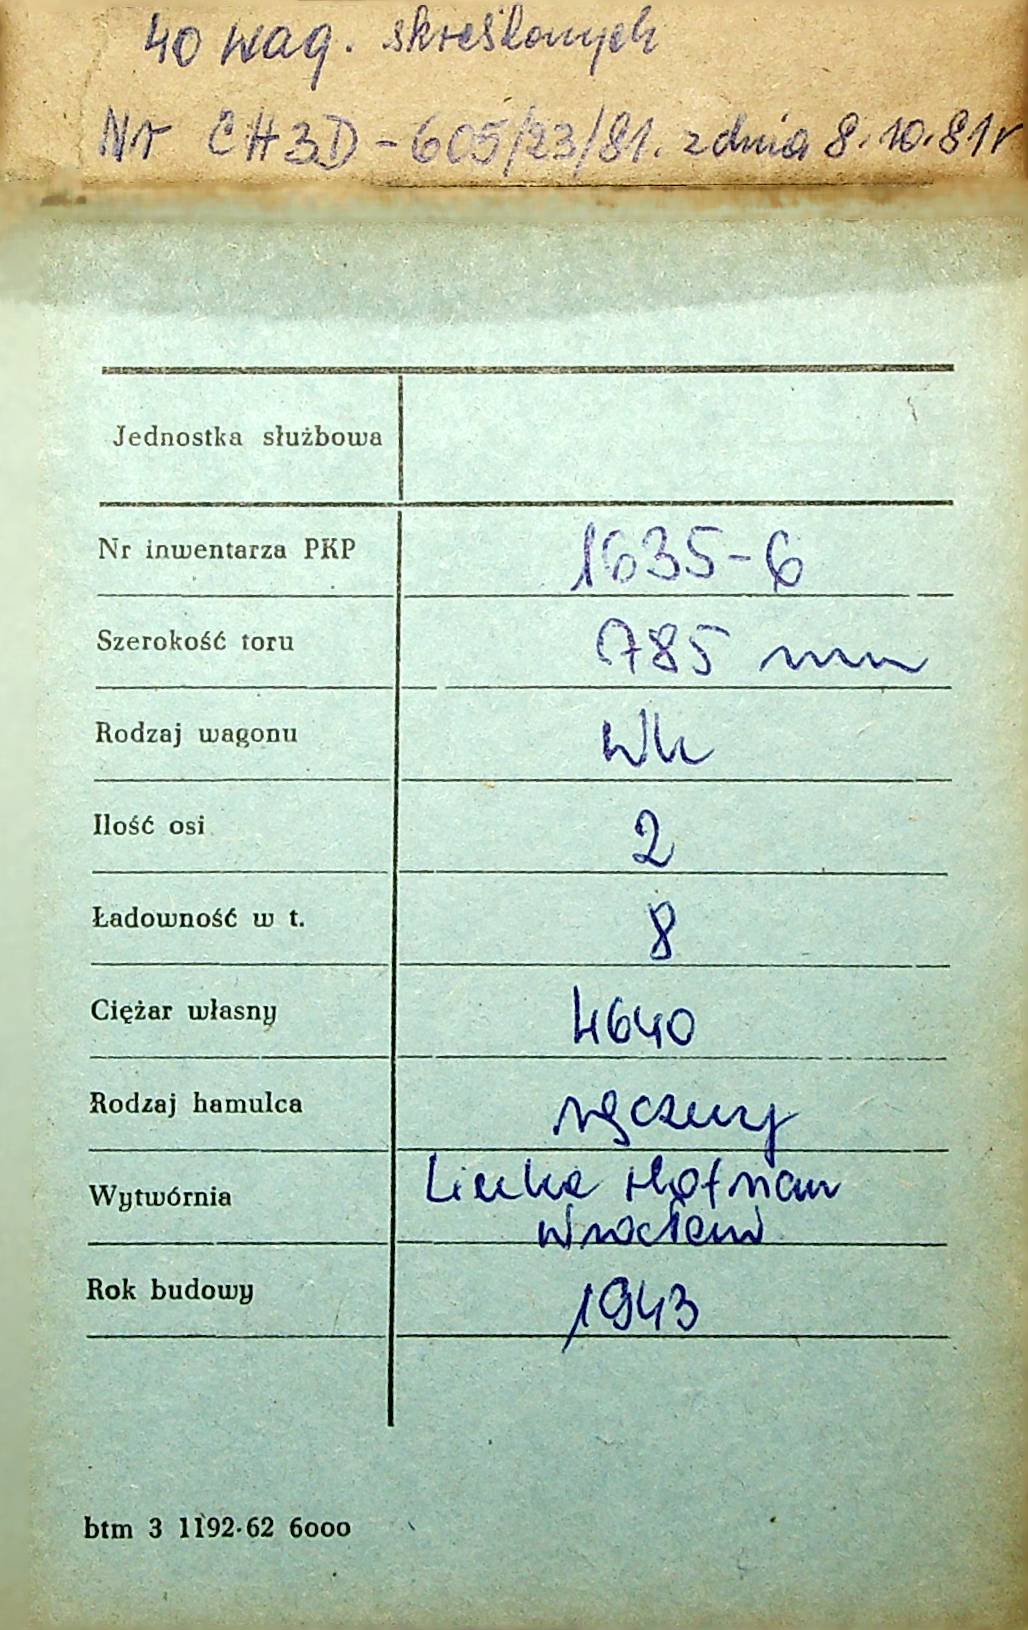 40 wag. skreślonych
Nr CH3D-605/23/81. z dnia 8.10.81r
Jednostka służbowa
Nr inwentarza PKP 1635-6
Szerokość toru 785 mm
Rodzaj wagonu Wk
Ilość osi 2
Ładowność w t. 8
Ciężar własny 4640
Rodzaj hamulca ręczny
Wytwórnia Linke Hofman
Wrocław
Rok budowy 1943
btm 3 1192-62 6000